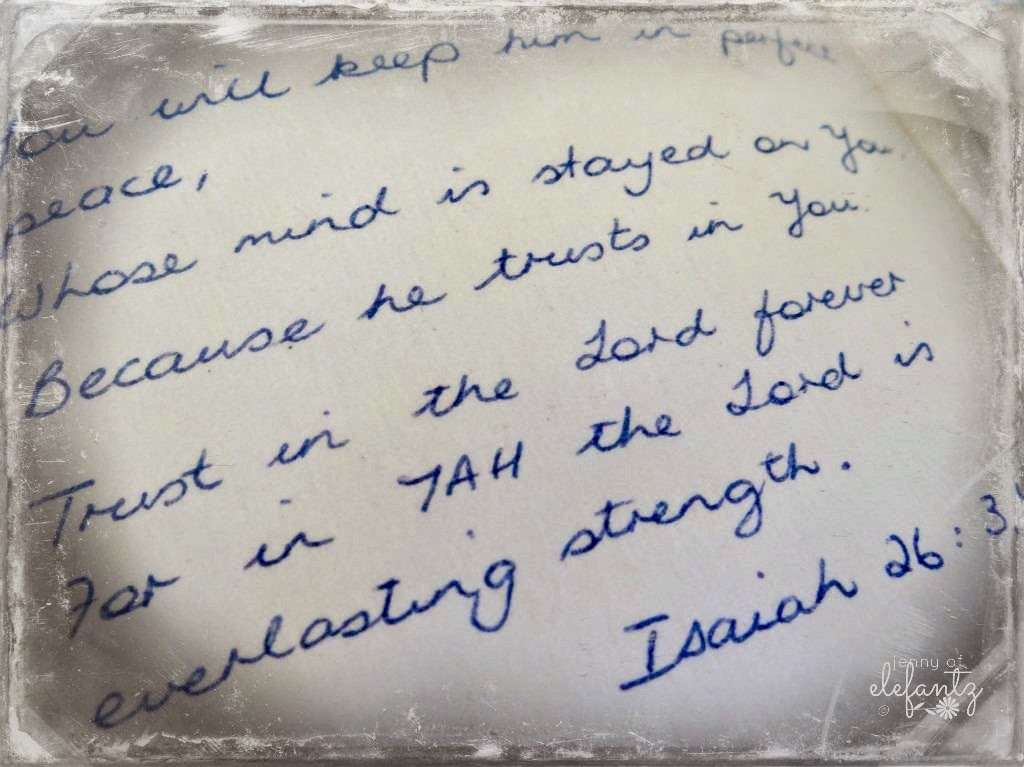 You will keep him in perfect
peace,
Whose mind is stayed on You.
Because he trusts in You.
Trust in the Lord forever
For in YAH the Lord is
everlasting strength.
Isaiah 26:3,
jenny of
elefantz
©